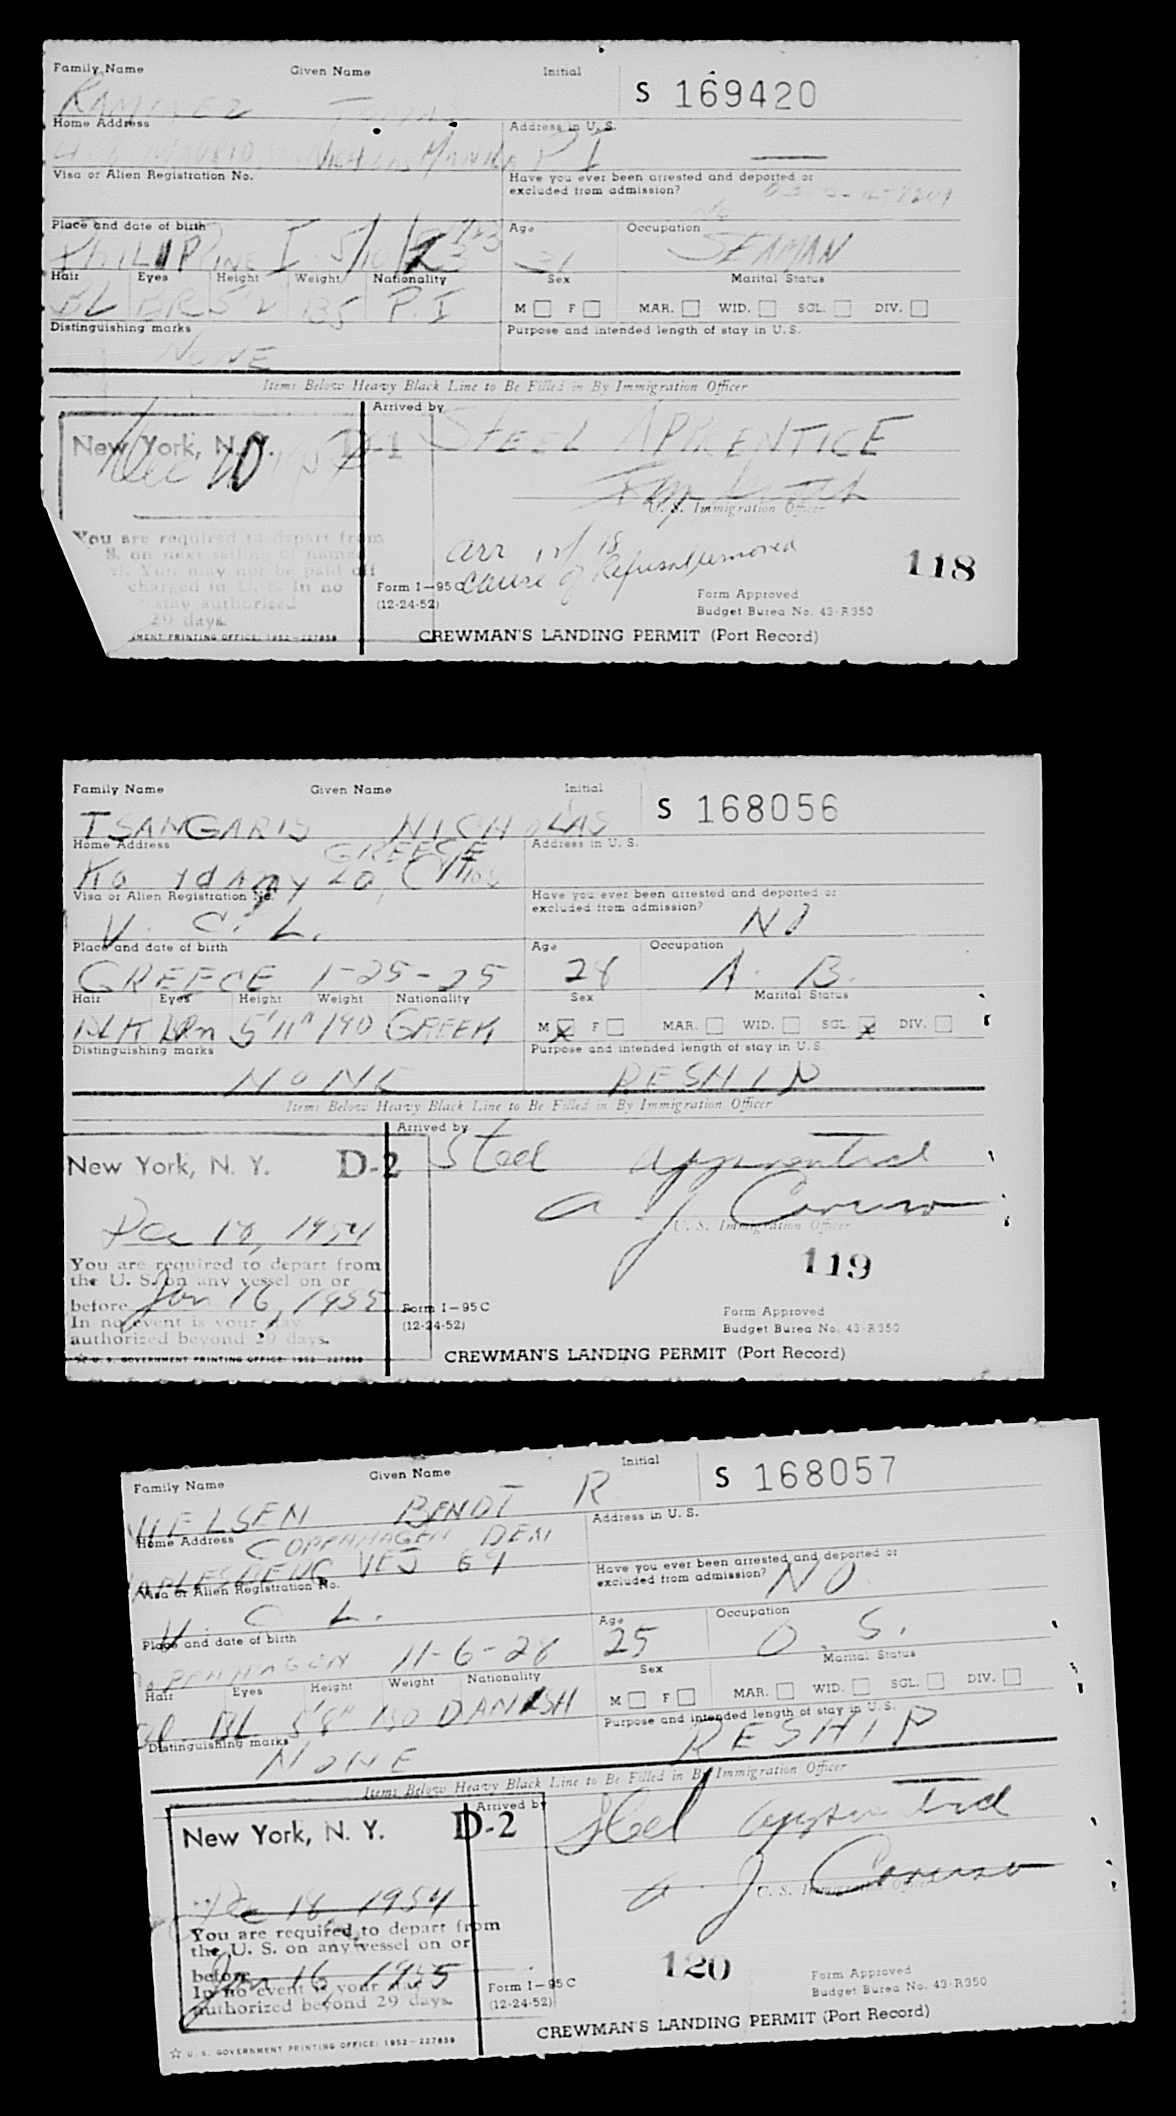 Family Name Given Name Initial S 169420
RAMIREZ
Home Address Address in U. S.
MANILA P I
Visa or Alien Registration No. Have you ever been arrested and deported or
excluded from admission?
Place and date of birth Age Occupation
PHILIPPINE I 5/10/23 31 SEAMAN
Hair Eyes Height Weight Nationality Sex Marital Status
BL BR 5'2 135 P. I M F MAR. WID. SGL. DIV.
Distinguishing marks Purpose and intended length of stay in U. S.
NONE
Items Below Heavy Black Line to Be Filled in By Immigration Officer
Arrived by
New York, N. Y. D-1 STEEL APPRENTICE
Dec
U. S. Immigration Officer
You are required to depart from
S. on next sailing of named
You may not be paid off
charged in U. S. In no
stay authorized
29 days.
arr
cause of Refusal removed
118
Form I—95C
(12-24-52)
Form Approved
Budget Bureau No. 43-R350
MENT PRINTING OFFICE: 1952—227859
CREWMAN'S LANDING PERMIT (Port Record)
Family Name Given Name Initial S 168056
TSANGARIS NICHOLAS
Home Address Address in U. S.
GREECE
Visa or Alien Registration No. Have you ever been arrested and deported or
excluded from admission?
V. C. L. NO
Place and date of birth Age Occupation
GREECE 1-25-25 28 A. B.
Hair Eyes Height Weight Nationality Sex Marital Status
BLK Brn 5'11" 190 GREEK M X F MAR. WID. SGL. X DIV.
Distinguishing marks Purpose and intended length of stay in U. S.
NONE RESHIP
Items Below Heavy Black Line to Be Filled in By Immigration Officer
Arrived by
New York, N. Y. D-2 Steel Apprentice
A J Caruso
U. S. Immigration Officer
Dec 18, 1954
You are required to depart from
the U. S. on any vessel on or
before Jan 16, 1955
In no event is your stay
authorized beyond 29 days.
119
Form I—95C
(12-24-52)
Form Approved
Budget Bureau No. 43-R350
☆ U. S. GOVERNMENT PRINTING OFFICE: 1952—227859
CREWMAN'S LANDING PERMIT (Port Record)
Family Name Given Name Initial S 168057
NIELSEN BENDT R
Home Address Address in U. S.
COPENHAGEN DEN
VEJ 69
Visa or Alien Registration No. Have you ever been arrested and deported or
excluded from admission? NO
V. C. L.
Place and date of birth Age Occupation
COPENHAGEN 11-6-28 25 O. S.
Hair Eyes Height Weight Nationality Sex Marital Status
BL 5'8" 150 DANISH M F MAR. WID. SGL. DIV.
Distinguishing marks Purpose and intended length of stay in U. S.
NONE RESHIP
Items Below Heavy Black Line to Be Filled in By Immigration Officer
Arrived by
New York, N. Y. D-2 Steel Apprentice
A. J Caruso
U. S. Immigration Officer
Dec 18 1954
You are required to depart from
the U. S. on any vessel on or
before Jan 16, 1955
In no event is your stay
authorized beyond 29 days.
120
Form I—95C
(12-24-52)
Form Approved
Budget Bureau No. 43-R350
☆ U. S. GOVERNMENT PRINTING OFFICE: 1952—227859
CREWMAN'S LANDING PERMIT (Port Record)